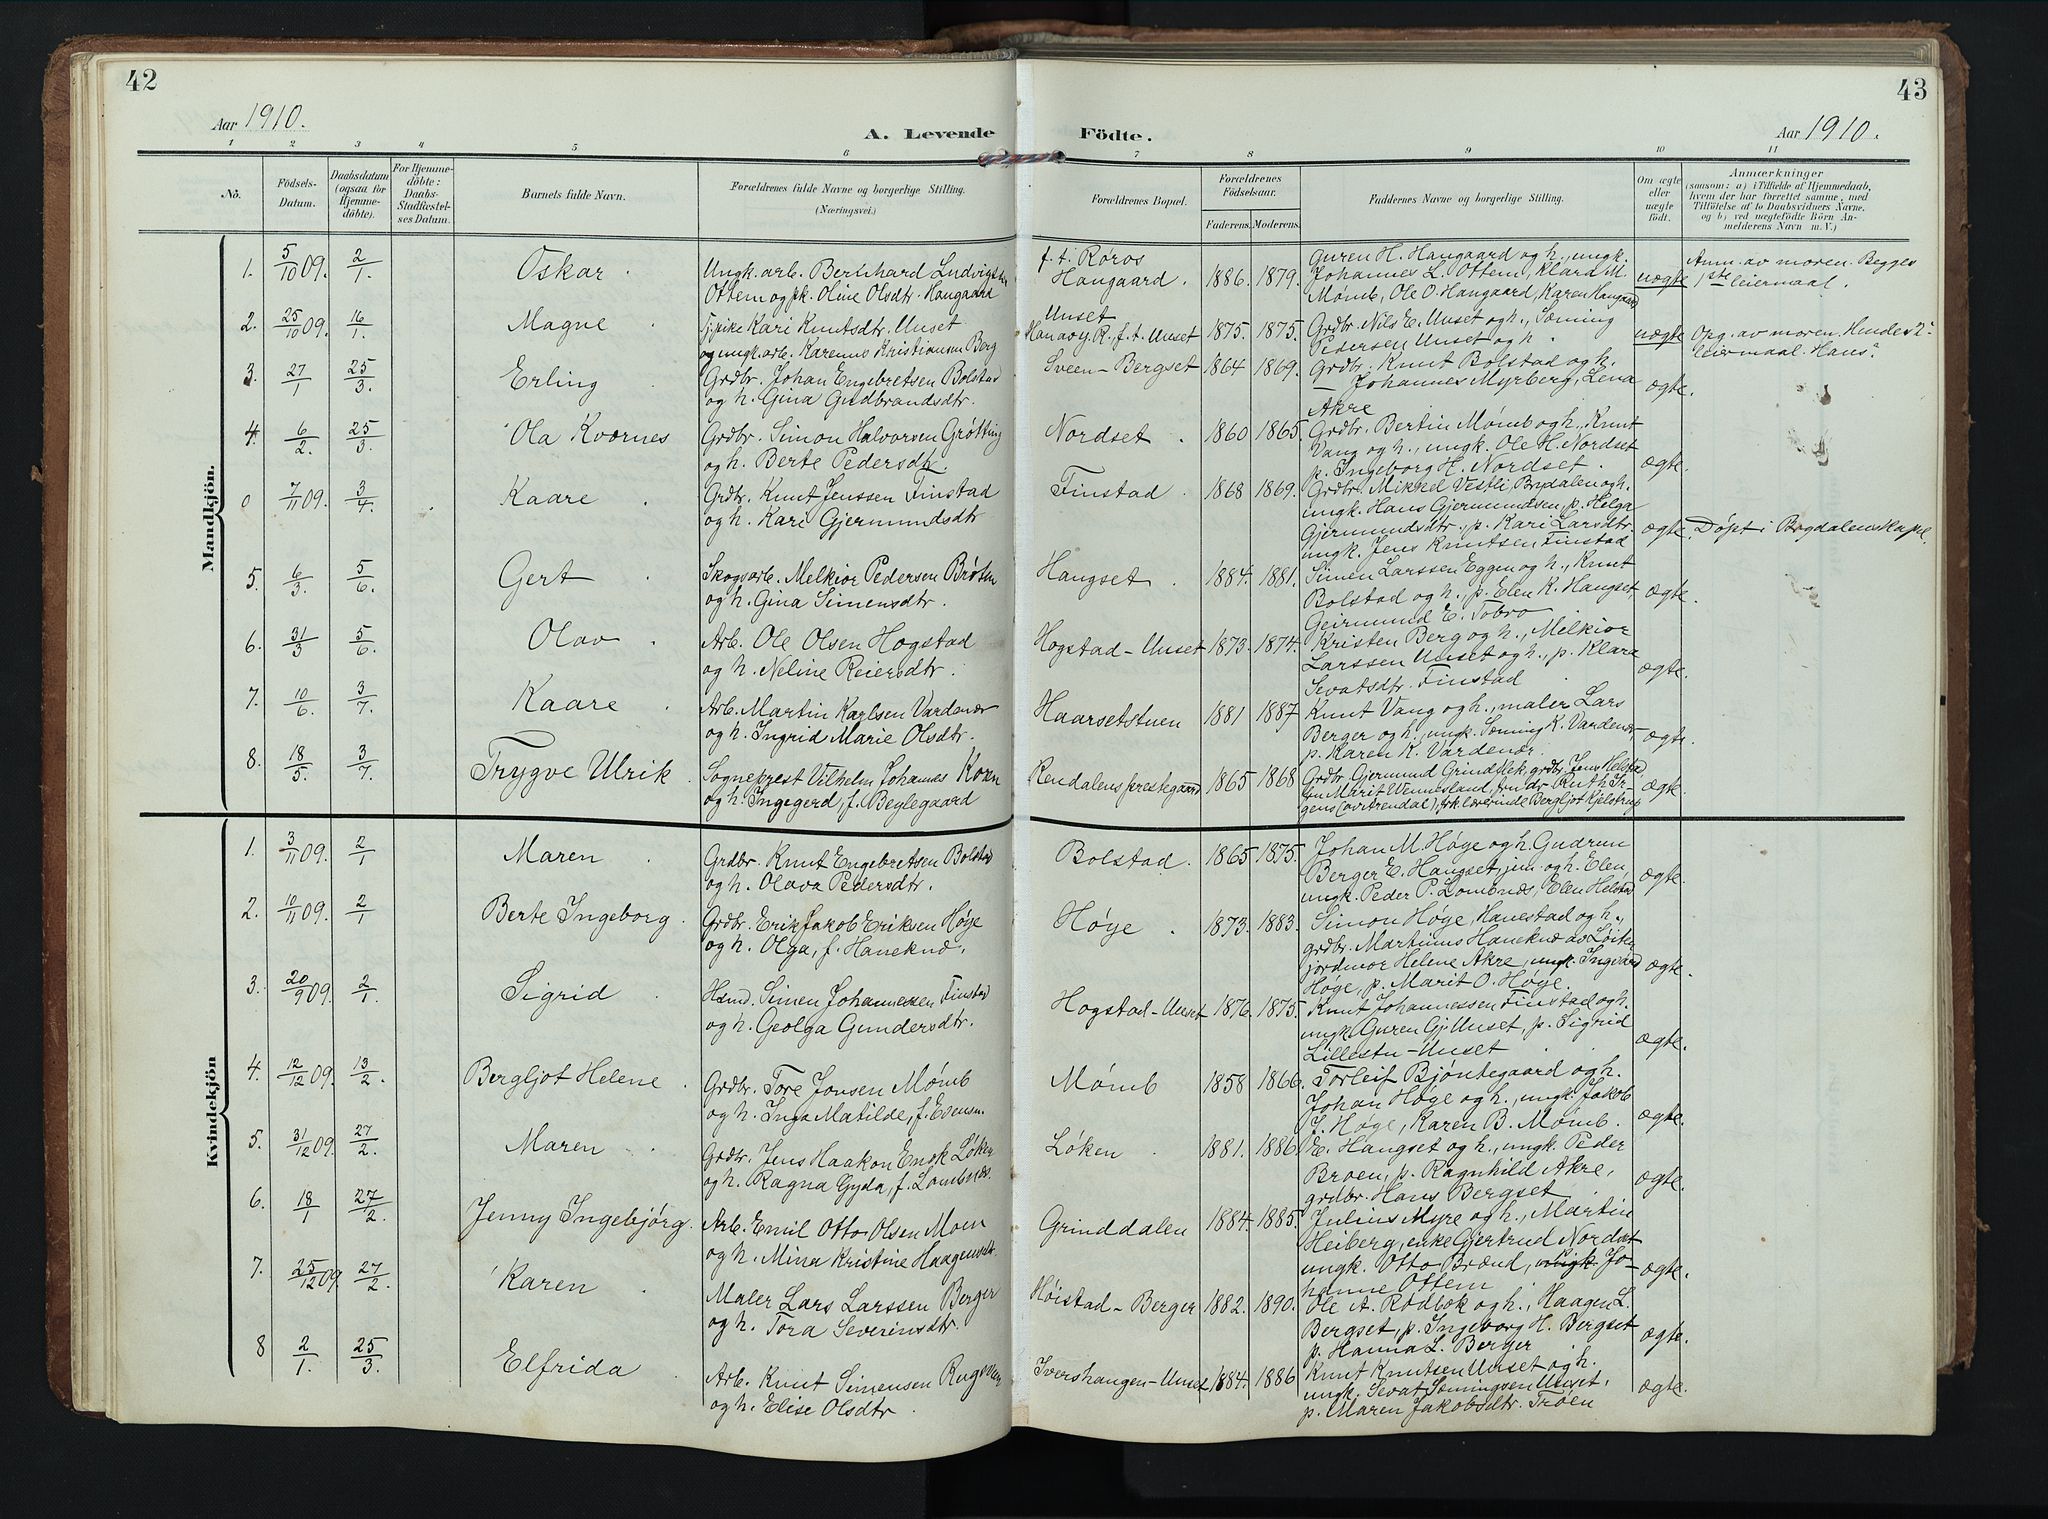 42
Aar 1910.
A. Levende
1 2 3 4 5 6
Nö.
Födsels-
Datum.
Daabsdatum
(ogsaa for
Hjemme-
döbte).
For Hjemme-
döbte:
Daabs-
Stadfæstel-
ses Datum.
Barnets fulde Navn.
Forældrenes fulde Navne og borgerlige Stilling.
(Næringsvei.)
Mandkjön.
1. 5/10 09. 2/1 Oskar. Ungk. arb. Bernhard Ludvigsen
Ottem og pk. Oline Olsdtr. Haugaard
2. 25/10 09. 16/1. Magne. Kari Knutsdtr. Unset
og ungk. arb. Karenus Kristiansen Berg
3. 27/1 25/3. Erling. Grdbr. Johan Engebretsen Bolstad
og h. Gina Gudbrandsdtr.
4. 6/2. 25/3. Ola Kværnes Grdbr. Simon Halvorsen Grøtting
og h. Berte Pedersdtr.
0 7/11 09. 3/4. Kaare. Grdbr. Knut Jenssen Finstad
og h. Kari Gjermundsdtr
5. 6/3. 5/6. Gert. Skogsarb. Melkior Pedersen Brøten
og h. Gina Simensdtr.
6. 31/3 5/6. Olav. Arb. Ole Olsen Hogstad
og h. Neline Reiersdtr.
7. 10/6. 3/7. Kaare. Arb. Martin Karlsen Vardenær
og h. Ingrid Marie Olsdtr.
8. 18/5. 3/7. Trygve Ulrik. Sogneprest Vilhelm Johannes Koren
og h. Ingegerd, f. Beylegaard
Kvindekjön
1. 3/11 09. 2/1 Maren. Grdbr. Knut Engebretsen Bolstad
og h. Olava Pedersdtr.
2. 10/11 09. 2/1 Berte Ingeborg. Grdbr. Erik Jakob Eriksen Høye
og h. Olga, f. Haneknæ.
3. 20/9 09. 2/1. Sigrid. Simen Johannessen Finstad
og h. Geolga Gundersdtr.
4. 12/12 09. 13/2. Bergljot Helene. Grdbr. Tore Jonsen Mømb
og h. Inga Matilde, f. Esensen.
5. 31/12 09. 27/2. Maren. Grdbr. Jens Haakon Løken
og h. Ragna Gyda, f. Lomsnæs.
6. 18/1 27/2. Jenny Ingebjørg. Arb. Emil Otto Olsen Moen
og h. Mina Kristine Haagensdtr.
7. 25/12 09. 27/2. Karen. Maler Lars Larssen Berger
og h. Tora Severinsdtr.
8 2/1. 25/3. Elfrida. Arb. Knut Simensen Rugsveen
og h. Elise Olsdtr.
43
Födte.
Aar 1910.
7 8 9 10 11
Forældrenes Bopæl.
Forældrenes
Födselsaar.
Faderens. Moderens.
Faddernes Navne og borgerlige Stilling.
Om ægte
eller
uægte
födt.
Anmærkninger
(saasom: a) i Tilfælde af Hjemmedaab,
hvem der har forrettet samme, med
Tilföielse af to Daabsvidners Navne,
og b) ved uægtefödte Börn An-
melderens Navn m. V.)
f. t. Røros
Haugaard. 1886. 1879. Guren H. Haugaard og h., ungk.
Johannes L. Ottem, Klara M.
Mømb, Ole O. Haugaard, Karen Haugaard uægte Anm. av moren. Begges
1ste leiermaal.
Unset
f. t. Unset 1875. 1875. Grdbr. Nils E. Unset og h., Sæming
Pedersen Unset og h. uægte Opg. av moren. Hendes 2.
leiermaal. Hans?
Sveen - Bergset 1864 1869. Grdbr. Knut Bolstad og h.
Johannes Myrberg, Lena
Akre ægte.
Nordset. 1860 1865. Grdbr. Bertin Mømb og h., Knut
Vang og h., ungk. Ole H. Nordset
p. Ingeborg H. Nordset. ægte.
Finstad. 1868 1869. Grdbr. Mikkel Vestli, Brydalen og h.
ungk. Hans Gjermundsen, p. Helga
Gjermundsdtr., p. Kari Larsdtr.
ungk. Jens Knutsen Finstad ægte. Døpt i Brydalenskapel.
Haugset. 1884. 1881. Simen Larssen Eggen og h., Knut
Bolstad og h., p. Elen K. Haugset
Geirmund E. Tobro ægte.
Hogstad - Unset 1873. 1874. Kristen Berg og h., Melkior
Larssen Unset og h., p. Klara
Sevatsdtr. Finstad ægte.
Haarsetstuen 1881 1887 Knut Vang og h., maler Lars
Berger og h., ungk. Sæming K. Vardenær
p. Karen K. Vardenær. ægte.
Rendalens prestegaard 1865 1868 Grdbr. Gjermund Grindflek, grdbr. Jens Helstad
fru Marit Wennesland, fru dr Ruth In-
gens (øvre rendal), frk lærerinde Bergljot Kjelstrup ægte.
Bolstad. 1865 1875. Johan M. Høye og h. Gudrun
Berger E. Haugset, jun. og h. Elen,
ungk. Peder P. Lomsnæs, Elen Helstad ægte.
Høye. 1873. 1883. Simon Høye, Hanestad og h.,
grdbr. Martinus Haneknæ av Løiten
jordmor Helene Akre, ungk. Ingvard
Høye, p. Marit O. Høye. ægte.
Hogstad - Unset 1876. 1875. Knut Johannessen Finstad og h.
ungk. Guren Gj. Unset, p. Sigrid
Lillestu - Unset ægte.
Mømb 1858 1866. Torleif Bjøntegaard og h.
Johan Høye og h., ungk. Jakob
J. Høye, Karen B. Mømb. ægte.
Løken. 1881. 1886 E. Haugset og h., ungk. Peder
Broen, p. Ragnhild Akre,
grdbr. Hans Bergset ægte.
Grinddalen 1884. 1885. Julius Myre og h., Martin
Heiberg, enke Gjertrud Nordset
ungk. Otto Brænd, Jo-
hanne Ottem ægte.
Høistad - Berger 1882. 1890. Ole A. Rødbæk og h., Haagen L.
Bergset, p. Ingeborg H. Bergset
p. Hanna L. Berger ægte.
Ivershaugen - Unset 1884. 1886 Knut Knutsen Unset og h.
ungk. Sevat Sæmingsen Unset,
p. Maren Jakobsdtr. Trøen ægte.